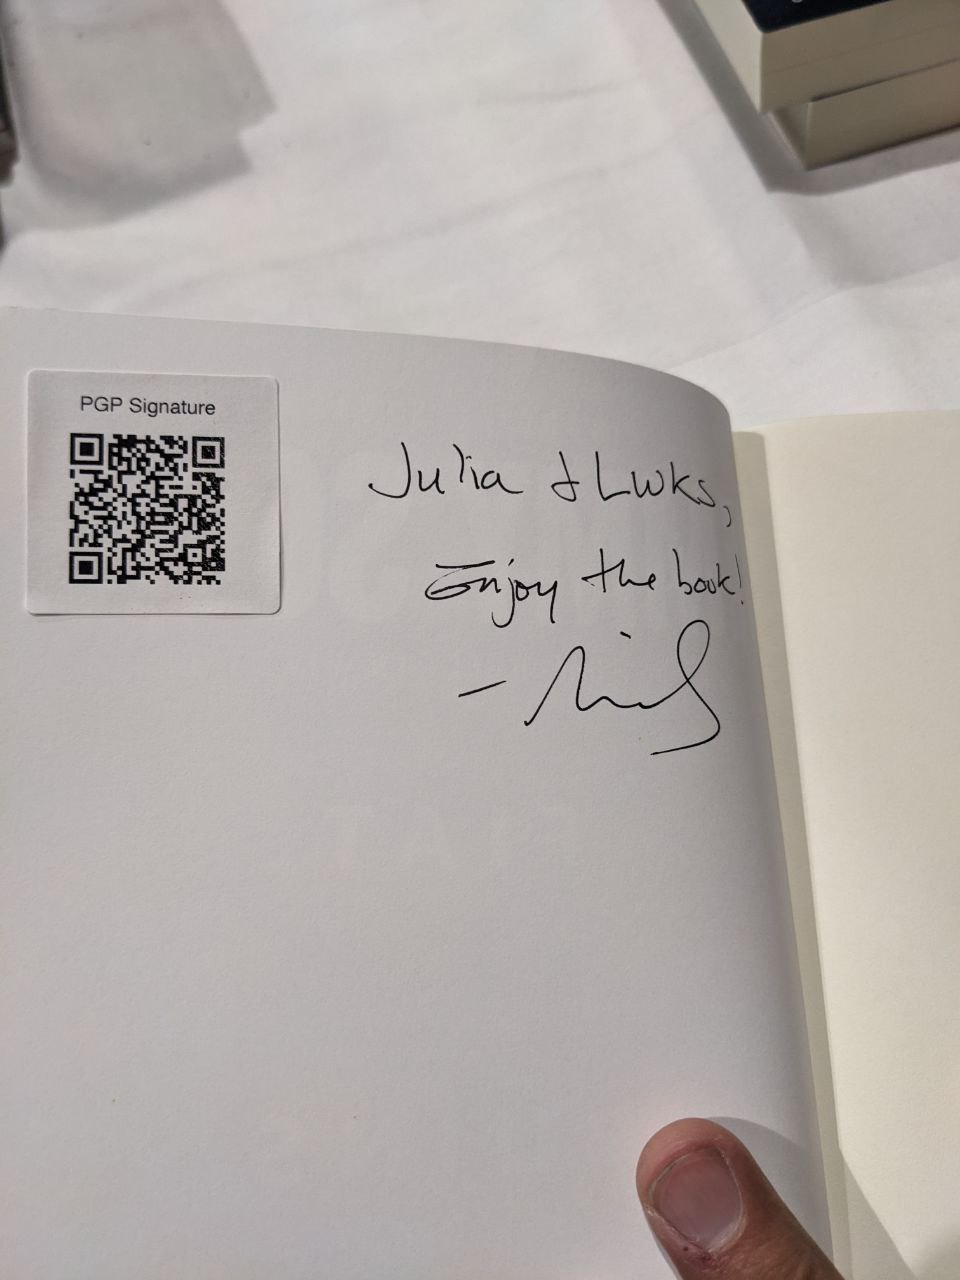 PGP Signature
Julia & Lwks,
Enjoy the book!